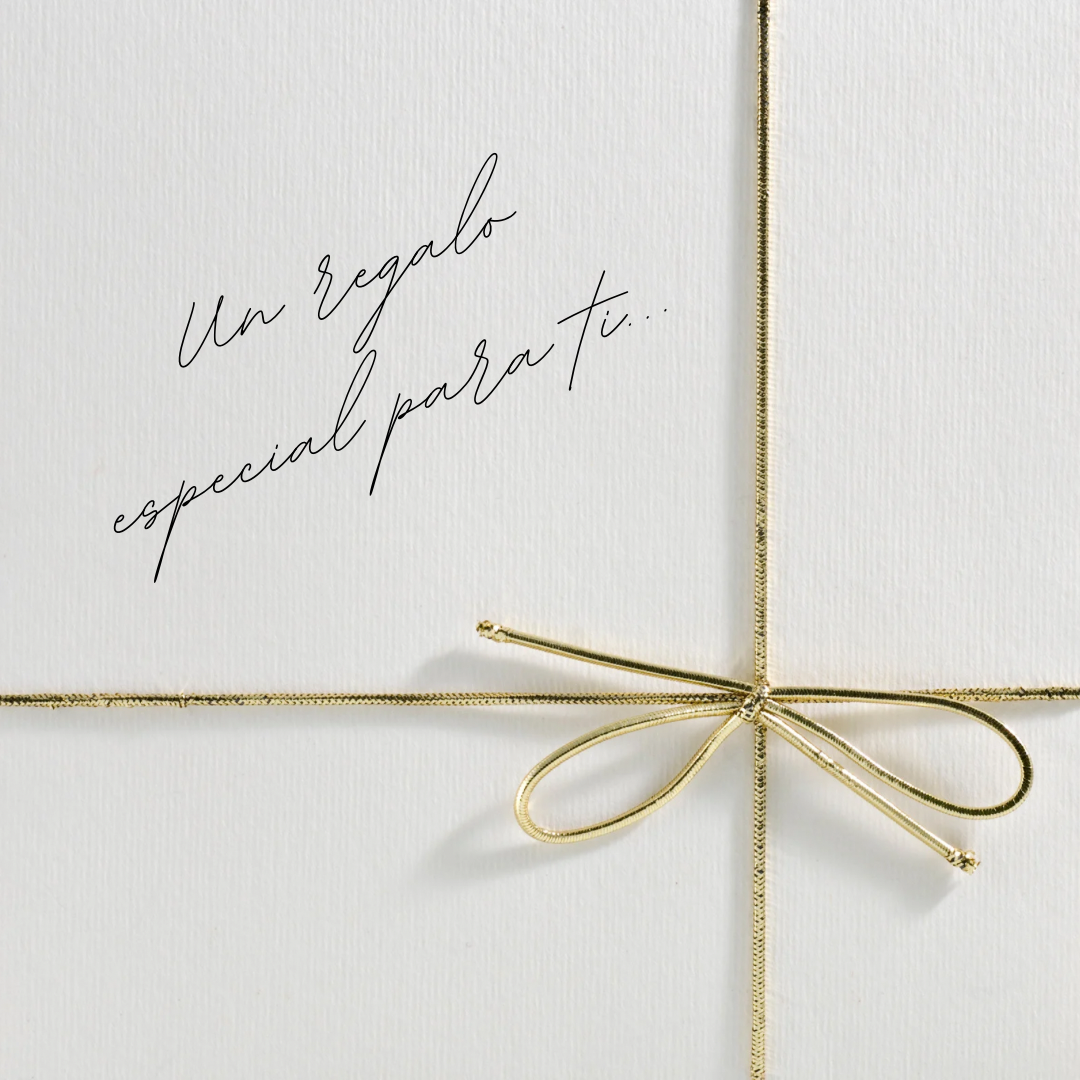 Un regalo
especial para ti...